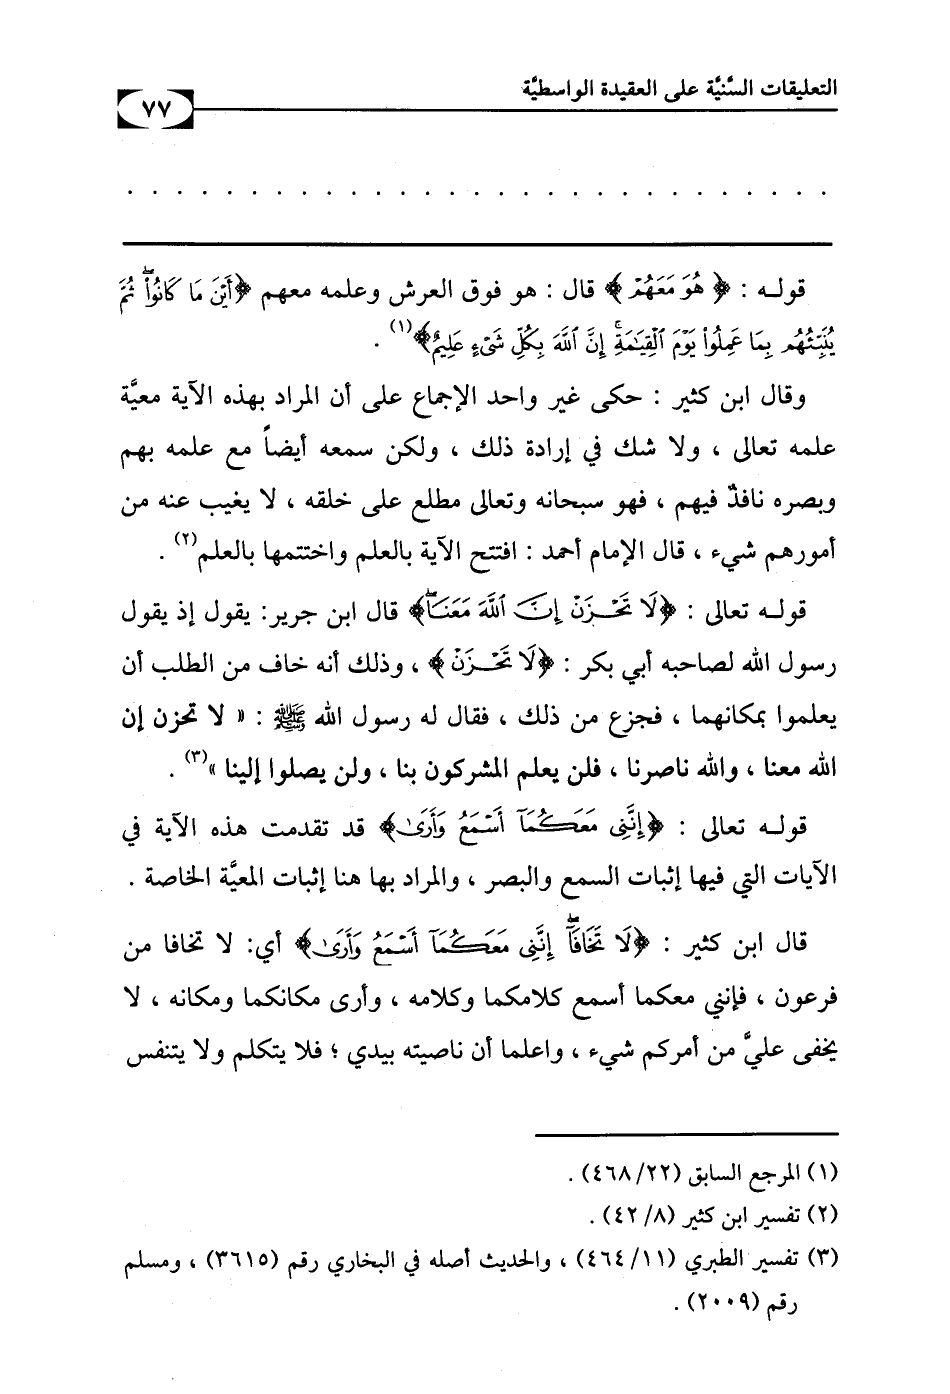 التعليقات السَّنيَّة على العقيدة الواسطيَّة
٧٧
قولـه : ﴿ هُوَ مَعَهُمْ ﴾ قال : هو فوق العرش وعلمه معهم ﴿أَيْنَ مَا كَانُوا۟ ۖ ثُمَّ
يُنَبِّئُهُم بِمَا عَمِلُوا۟ يَوْمَ ٱلْقِيَٰمَةِ ۚ إِنَّ ٱللَّهَ بِكُلِّ شَىْءٍ عَلِيمٌ﴾(١) .
وقال ابن كثير : حكى غير واحد الإجماع على أن المراد بهذه الآية معيَّة
علمه تعالى ، ولا شك في إرادة ذلك ، ولكن سمعه أيضاً مع علمه بهم
وبصره نافذٌ فيهم ، فهو سبحانه وتعالى مطلع على خلقه ، لا يغيب عنه من
أمورهم شيء ، قال الإمام أحمد : افتتح الآية بالعلم واختتمها بالعلم(٢) .
قولـه تعالى : ﴿لَا تَحْزَنْ إِنَّ ٱللَّهَ مَعَنَا ۖ﴾ قال ابن جرير: يقول إذ يقول
رسول الله لصاحبه أبي بكر : ﴿لَا تَحْزَنْ ﴾ ، وذلك أنه خاف من الطلب أن
يعلموا بمكانهما ، فجزع من ذلك ، فقال له رسول الله ﷺ : « لا تحزن إن
الله معنا ، والله ناصرنا ، فلن يعلم المشركون بنا ، ولن يصلوا إلينا »(٣) .
قولـه تعالى : ﴿إِنَّنِى مَعَكُمَآ أَسْمَعُ وَأَرَىٰ﴾ قد تقدمت هذه الآية في
الآيات التي فيها إثبات السمع والبصر ، والمراد بها هنا إثبات المعيَّة الخاصة .
قال ابن كثير : ﴿لَا تَخَافَآ ۖ إِنَّنِى مَعَكُمَآ أَسْمَعُ وَأَرَىٰ﴾ أي: لا تخافا من
فرعون ، فإنني معكما أسمع كلامكما وكلامه ، وأرى مكانكما ومكانه ، لا
يخفى عليَّ من أمركم شيء ، واعلما أن ناصيته بيدي ؛ فلا يتكلم ولا يتنفس
(١) المرجع السابق (٤٦٨/٢٢) .
(٢) تفسير ابن كثير (٤٢/٨) .
(٣) تفسير الطبري (٤٦٤/١١) ، والحديث أصله في البخاري رقم (٣٦١٥) ، ومسلم
رقم (٢٠٠٩) .